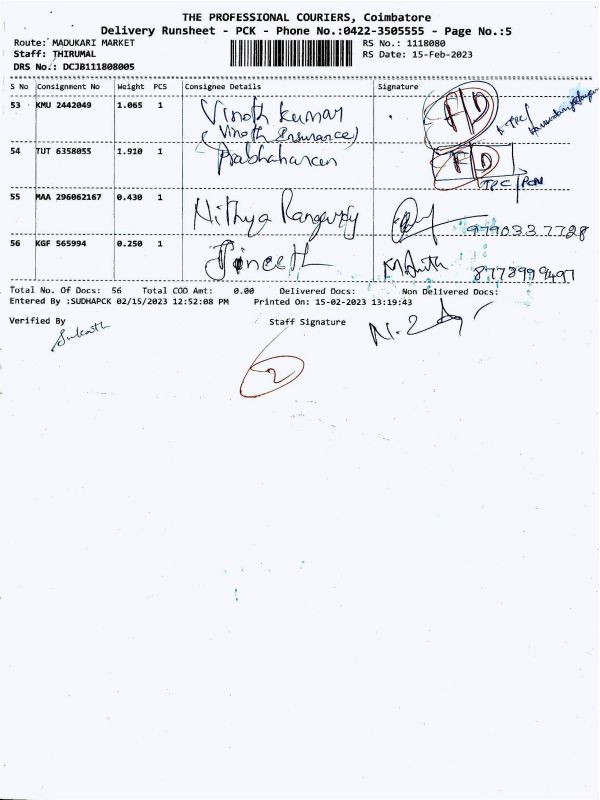 THE PROFESSIONAL COURIERS, Coimbatore
Delivery Runsheet - PCK - Phone No.:0422-3505555 - Page No.:5
Route: MADUKARI MARKET RS No.: 1118080
Staff: THIRUMAL RS Date: 15-Feb-2023
DRS No.: DCJB111808005
S No Consignment No Weight PCS Consignee Details Signature
53 KMU 2442049 1.065 1 Vinoth Kumar F/D
(Vinoth Insurance)
54 TUT 6358055 1.910 1 Prabhaharan F/D
TPC/PCN
55 MAA 296062167 0.430 1 Nithya 9790337728
56 KGF 565994 0.250 1 8778999497
Total No. Of Docs: 56 Total COD Amt: 0.00 Delivered Docs: Non Delivered Docs:
Entered By :SUDHAPCK 02/15/2023 12:52:08 PM Printed On: 15-02-2023 13:19:43
Verified By Staff Signature
2